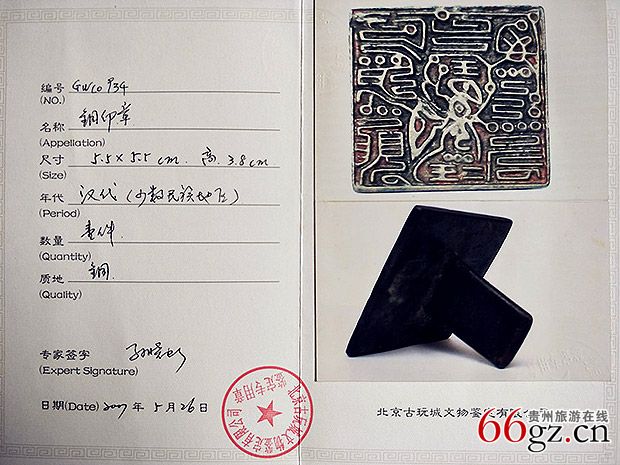 编号 GWCO 934
(NO.)
名称 铜印章
(Appellation)
尺寸 5.5×5.5cm. 高 3.8cm
(Size)
年代 汉代(少数民族地区)
(Period)
数量 壹件
(Quantity)
质地 铜.
(Quality)
专家签字
(Expert Signature)
日期(Date) 2007 年 5 月 26 日
北京古玩城文物鉴定有限公司
鉴定专用章
北京古玩城文物鉴定有限公司
贵州旅游在线
66gz.cn